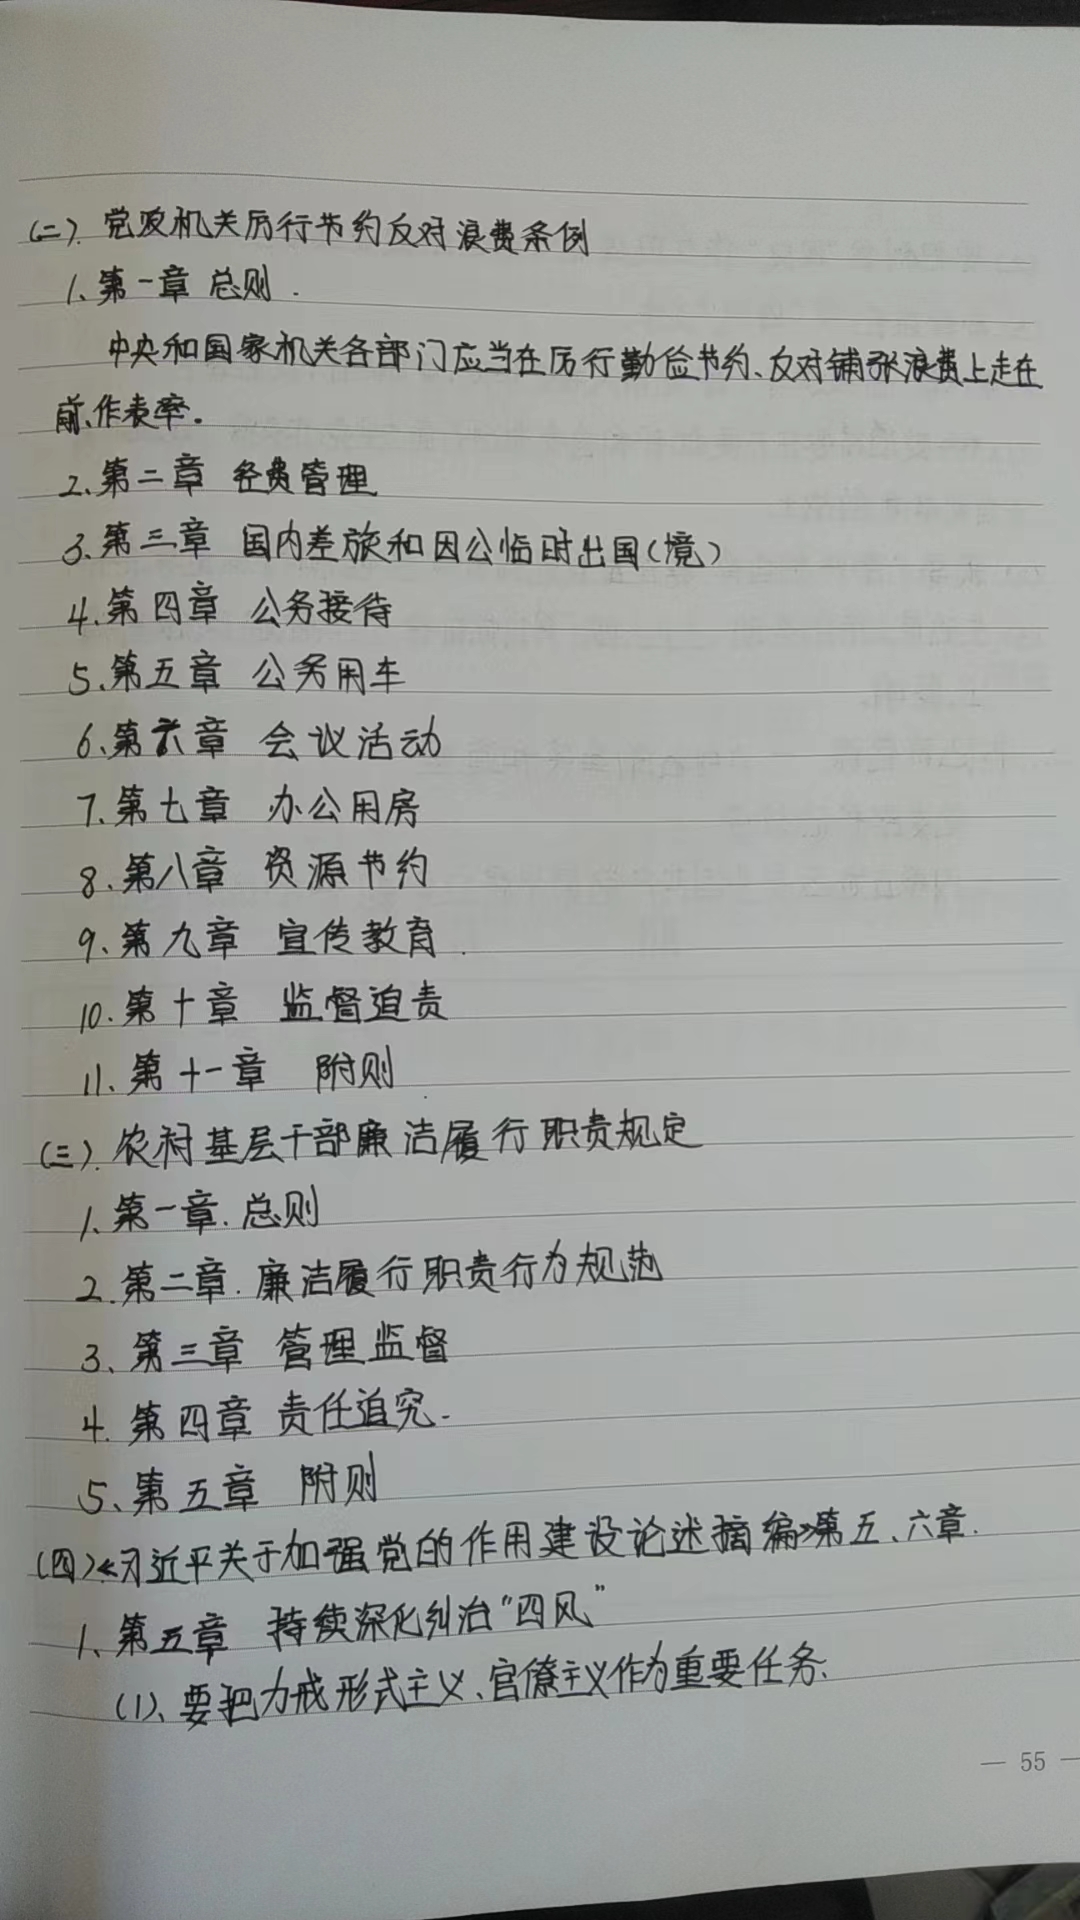 (二). 党政机关厉行节约反对浪费条例
1、第一章 总则.
中央和国家机关各部门应当在厉行勤俭节约、反对铺张浪费上走在
前、作表率。
2、第二章 经费管理
3、第三章 国内差旅和因公临时出国(境)
4、第四章 公务接待
5、第五章 公务用车
6、第六章 会议活动
7、第七章 办公用房
8、第八章 资源节约
9、第九章 宣传教育.
10、第十章 监督追责
11、第十一章 附则
(三). 农村基层干部廉洁履行职责规定
1、第一章. 总则
2、第二章. 廉洁履行职责行为规范
3、第三章 管理监督
4、第四章 责任追究.
5、第五章 附则
(四)《习近平关于加强党的作用建设论述摘编》第五、六章.
1、第五章 持续深化纠治“四风”
(1)、要把力戒形式主义、官僚主义作为重要任务.
— 55 —